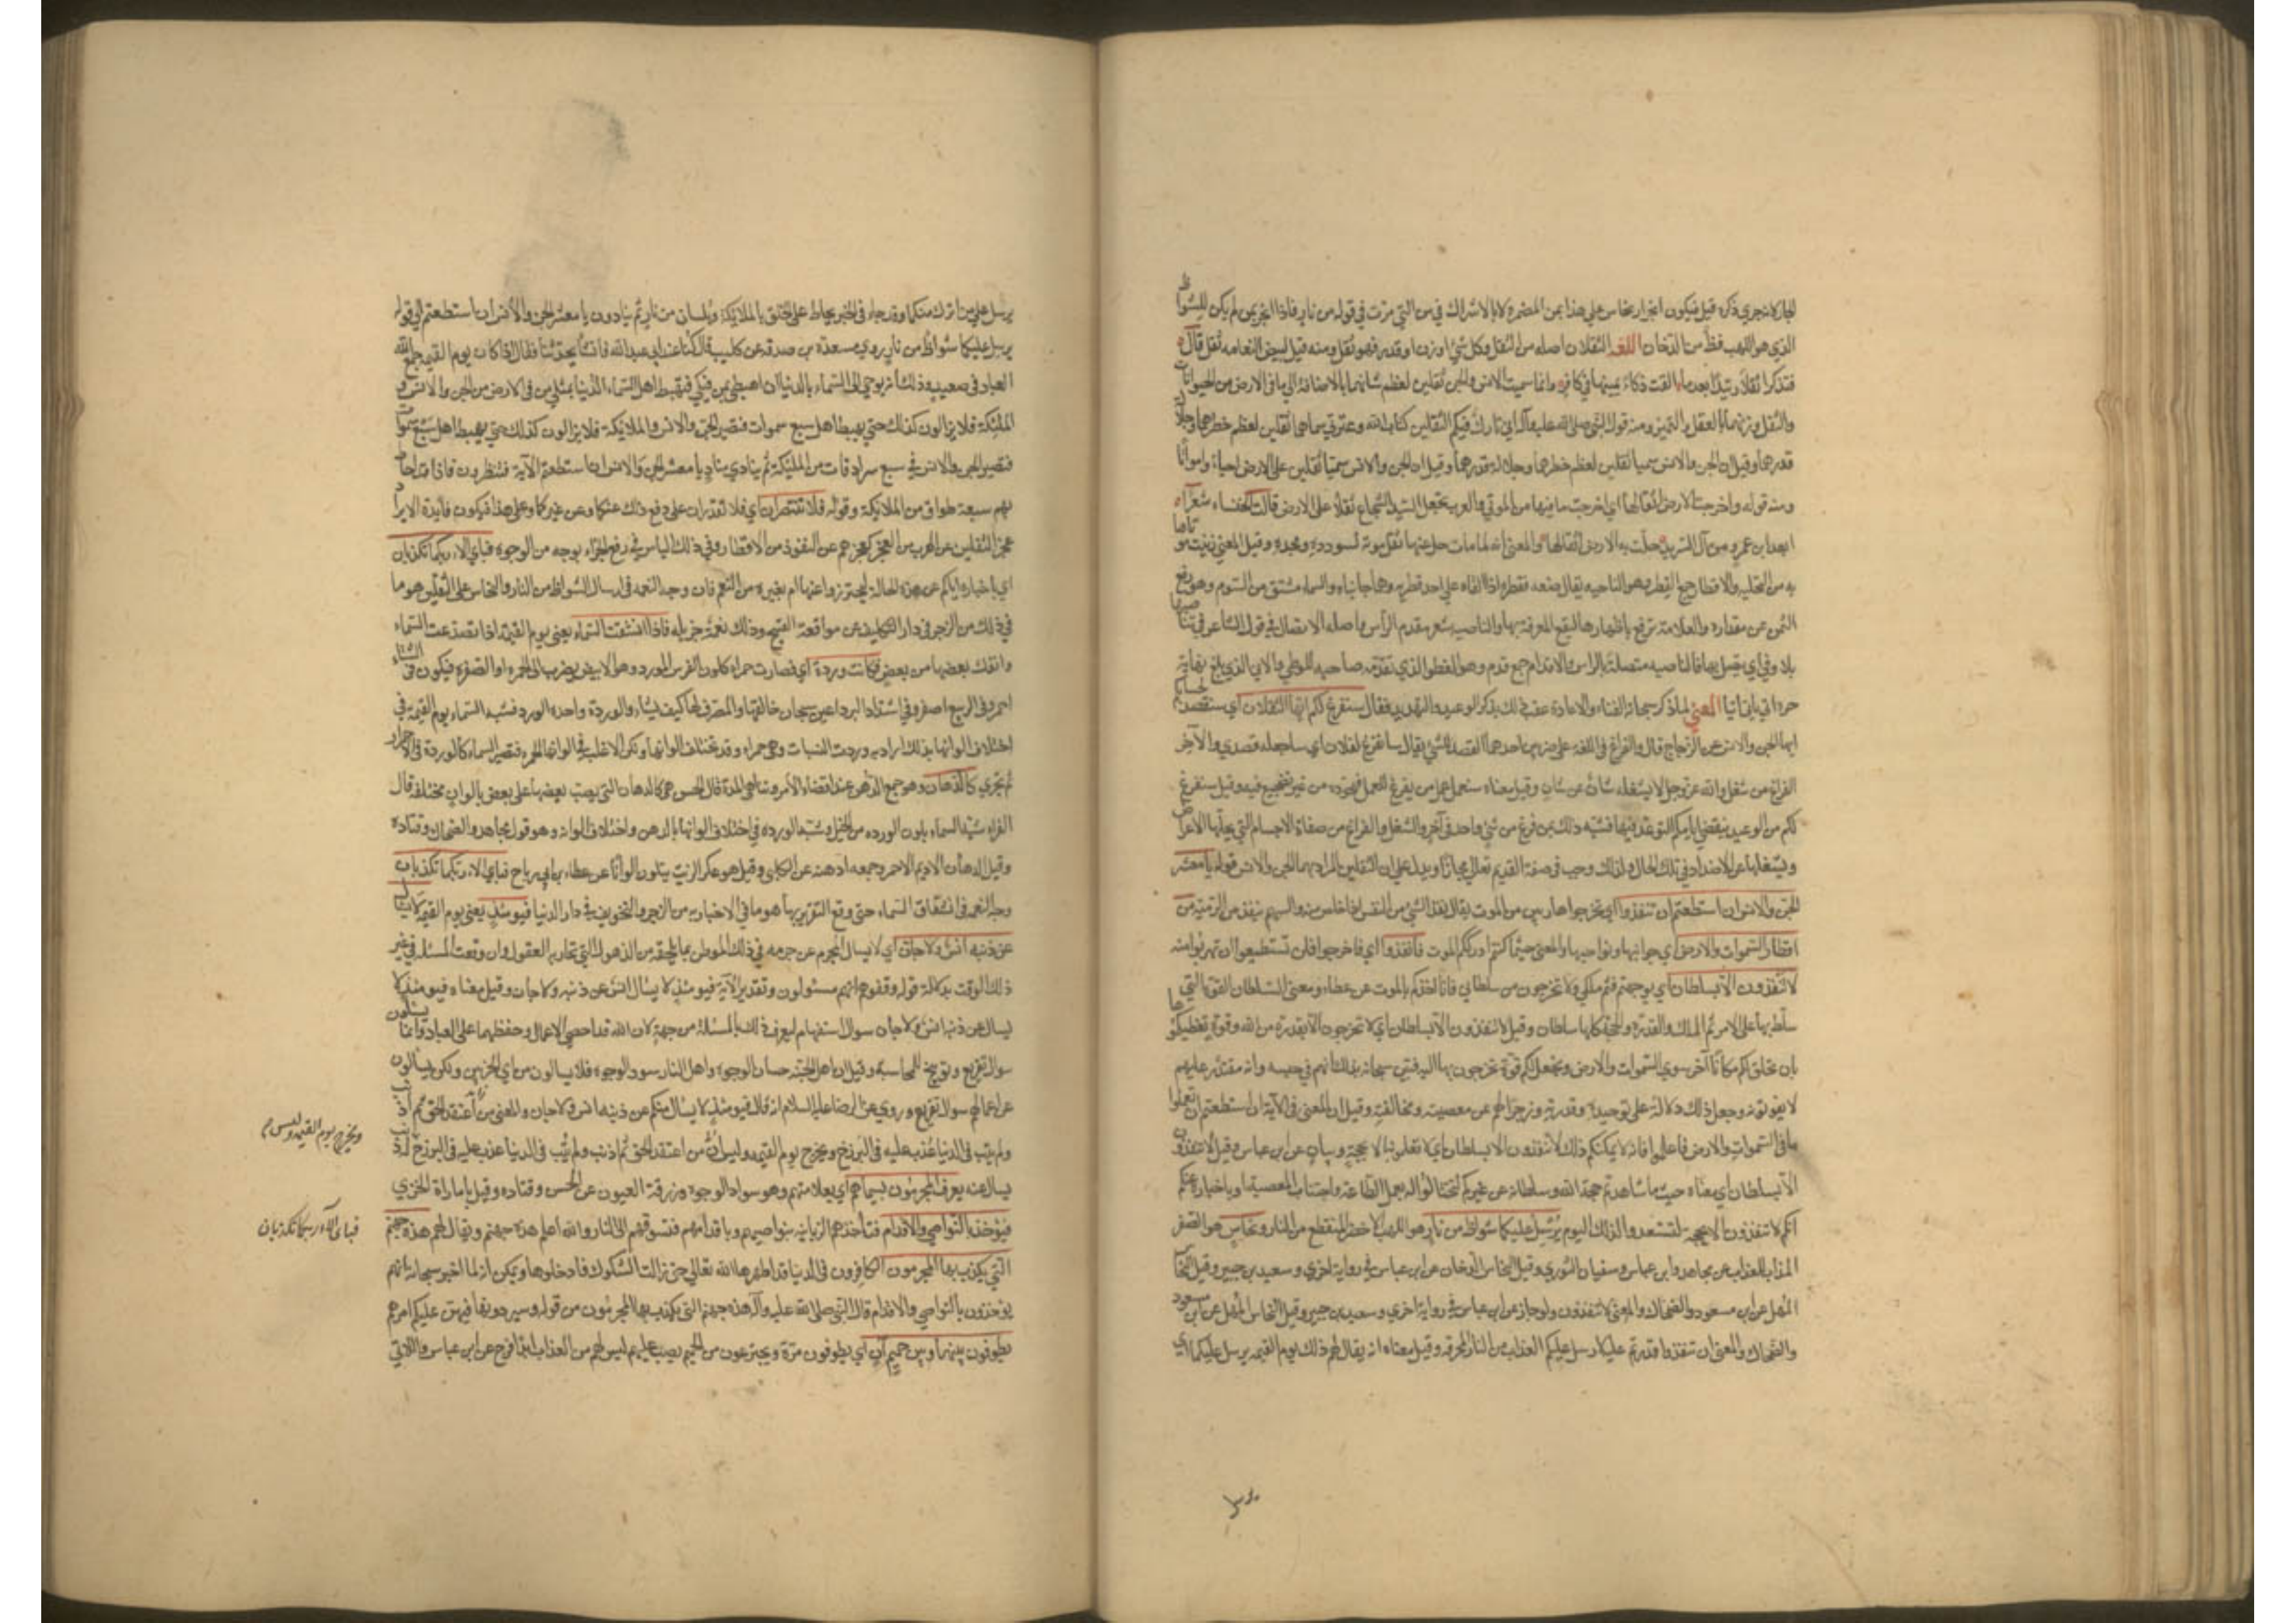 الجار لا تجري ذكره قيل فيكون انجرار نحاس على هذا بمن المضمرة لا بالاشراك في من التي مرّت في قوله من نار فاذا انجرّ بمن لم يكن للشواظ
الذي هو اللهب قط من الدخان اللغة الثقلان اصله من الثقل وكل شئ له وزن او قدر فهو ثقل ومنه قيل لبيض النعامه ثقل قال
فتذكرا ثقلا رثيدا بعد ما القت ذكاء يمينها في كافر وانما سميت الانس والجن ثقلين لعظم شانهما بالاضافة الى ما في الارض من الحيوانات
والثقل وزنهما بالعقل والتميز ومنه قول النبي صلى الله عليه وآله اني تارك فيكم الثقلين كتاب الله وعترتي سماهما ثقلين لعظم خطرهما وجلالة
قدرهما وقيل ان الجن والانس سميا ثقلين لعظم خطرهما وجلالة قدرهما وقيل ان الجن والانس سميا ثقلين لثقلهما على الارض احياء وامواتا
ومنه قوله واخرجت الارض اثقالها اي اخرجت ما فيها من الموتى والعرب تجعل السيد الشجاع ثقلا على الارض قالت الخنساء شعر آء
ابعد ابن عمرو من آل الشريد حلّت به الارض اثقالها والمعنى انه لما مات حل عنها ثقل بموته لسودده ومجده وقيل المعنى زينت موتاها
به من التحليه والاقطار جمع القطر وهو الناحيه يقال طعنه فقطره اذا القاه على احد قطريه وهما جانباه والسماء مشتق من السوم وهو رفع
الثمن عن مقداره والعلامة ترفع باظهارها لتقع المعرفة بها والناصيه شعر مقدم الرأس واصله الاتصال في قول الشاعر
بلاد قي اي يتصل بها فالناصيه متصلة بالراس والاقدام جمع قدم وهو العضو الذي يقدم صاحبه للوطي بالاني الذي بلغ نهاية
حره اني يأني انيا المعنى لما ذكر سبحانه الفناء والاعادة عقب ذلك بذكر الوعيد والتهديد فقال سنفرغ لكم ايها الثقلان اي سنقصد لحسابكم
ايها الجن والانس عن الزجاج قال والفراغ في اللغة على ضربين احدهما القصد للشئ يقال سافرغ لفلان اي ساجعله قصدي والآخر
الفراغ من شغل والله عز وجل لا يشغله شان عن شان وقيل معناه سنعمل عمل من يفرغ للعمل فيجوده من غير تضجيع فيه وقيل سنفرغ
لكم من الوعيد بتقضي ايامكم المتوعد فيها فشبه ذلك بمن فرغ من شئ واخذ في آخر والشغل والفراغ من صفات الاجسام التي يحلها الاعراض
ويشغلها عن الاضداد في تلك الحال ولذلك وجب في صفة القديم تعالى مجازا ويدل على ان الثقلين المراد بهما الجن والانس قوله يا معشر
الجن والانس ان استطعتم ان تنفذوا اي تخرجوا هاربين من الموت يقال نفذ الشئ من الشئ اذا خلص منه والسهم ينفذ من الرمية من
اقطار السموات والارض اي جوانبها ونواحيها والمعنى حيثما كنتم ادرككم الموت فانفذوا اي فاخرجوا فلن تستطيعوا ان تهربوا منه
لا تنفذون الا بسلطان اي يوجهتم فثم ملكي ولا تخرجون من سلطاني فانا آخذكم بالموت عن عطاء ومعنى السلطان القوة التي
سلط بها على الامر ثم الملك والقدرة والحجة كلها سلطان وقيل لا تنفذون الا بسلطان اي لا تخرجون الا بقدرة من الله وقوة يعطيكموها
بان يخلق لكم مكانا آخر سوى السموات والارض ويجعل لكم قوة تخرجون بها اليه فبين سبحانه بذلك انهم في حبسه وانه مقتدر عليهم
لا يفوتونه وجعل ذلك دلالة على توحيده وقدرته وزجرا لهم عن معصيته ومخالفته وقيل ان المعنى في الآية ان استطعتم ان تعلموا
ما في السموات والارض فاعلموا فانه لا يمكنكم ذلك لا تنفذون الا بسلطان اي لا تعلمونه الا بحجة وبيان عن ابن عباس وقيل لا تنفذون
الا بسلطان اي معناه حيث ما شاهدتم حجة الله وسلطانه عن غيركم لتحتالوا له بعمل الطاعة واجتناب المعصية وباخباره عنكم
انكم لا تنفذون الا بحجة لتستعدوا لذلك اليوم يرسل عليكما شواظ من نار هو اللهب الاخضر المنقطع من النار ونحاس هو الصفر
المذاب للعذاب عن مجاهد وابن عباس وسفيان الثوري وقيل النحاس الدخان عن ابن عباس في رواية اخرى وسعيد بن جبير وقيل النحاس
المهل عن ابن مسعود والضحاك والمعنى لا تنفذون ولو جاز عن ابن عباس في رواية اخرى وسعيد بن جبير وقيل النحاس المهل عن ابن مسعود
والضحاك والمعنى ان تنفذوا قدرتم عليكما رسل عليكم العذاب من النار المحرقة وقيل معناه انه يقال لهم ذلك يوم القيمة يرسل عليكما اي
يرسل على من اشرك منكما وقد جاء في الخبر يحاط على الخلق بالملائكة وبلسان من نار ثم ينادون يا معشر الجن والانس ان استطعتم الى قوله
يرسل عليكما شواظ من نار وروى مسعدة بن صدقة عن كليب قال كنا عند ابي عبد الله فانشأ يحدثنا فقال اذا كان يوم القيمه جمع الله
العباد في صعيد وذلك انه يوحي الى السماء الدنيا ان اهبطي بمن فيكي فيهبط اهل السماء الدنيا بمثلي من في الارض من الجن والانس و
الملئكة فلا يزالون كذلك حتى يهبط اهل سبع سموات فتصير الجن والانس والملائكة فلا يزالون كذلك حتى يهبط اهل سبع سموات
فتصير الجن والانس في سبع سرادقات من الملئكة ثم ينادي مناد يا معشر الجن والانس ان استطعتم الآية فينظرون فاذا قد احاط
بهم سبعة اطواق من الملائكة وقوله فلا تنتصران اي فلا تقدران على دفع ذلك عنكما وعن غيركما وعلى هذا فيكون فائدة الايراد
عجز الثقلين عن الهرب من العجز كعجزهم عن النفوذ من الاقطار وفي ذلك الياس في رفع الجزاء بوجه من الوجوه فباي آلاء ربكما تكذبان
اي باخباره اياكم عن هذه الحالة ليحترزوا عنها ام بغيره من النعم فان وجه النعمه في ارسال الشواظ من النار والنحاس على الثقلين هو ما
في ذلك من الزجر في دار التكليف عن مواقعة القبيح وذلك نعمة جزيله فاذا انشقت السماء يعني يوم القيمة اذا تصدعت السماء
وانفك بعضها من بعض فكانت وردة اي فصارت حمراء كلون الفرس الورد وهو الابيض يضرب الى الحمرة او الصفره فيكون في الشتاء
احمر وفي الربيع اصفر وفي اشتداد البرد اغبر سبحان خالقها والمصرف لها كيف يشاء والوردة واحدة الورد فشبه السماء يوم القيمه في
اختلاف الوانها بذلك اراد به وردت النبات وهي حمراء وقد تختلف الوانها ولكن الاغلب في الوانها الحمره فتصير السماء كالوردة في الاحمرار
ثم تجري كالدهان وهو جمع الدهن عند انقضاء الامر وتناهي المدة قال الحسن هي كالدهان التي يصب بعضها على بعض بالوان مختلفه قال
الفراء شبه السماء بلون الورده من الخيل وشبه الورده في اختلاف الوانها بالدهن واختلاف الوانه وهو قول مجاهد والضحاك وقتاده
وقيل الدهان الاديم الاحمر وجمعه ادهنه عن الكلبي وقيل هو عكر الزيت يتلون الوانا عن عطاء بن ابي رباح فباي آلاء ربكما تكذبان
وجه النعمة في انشقاق السماء حتى وقع التقرير بها هو ما في الاخبار به من الزجر والتخويف في دار الدنيا فيومئذ يعني يوم القيمة لا يسأل
عن ذنبه انس ولا جان اي لا يسال المجرم عن جرمه في ذلك الموطن لما يلحقه من الذهول التي تحار به العقول وان وقعت المسئله في غير
ذلك الوقت بدلالة قوله وقفوهم انهم مسئولون وتقدير الآية فيومئذ لا يسئال انس عن ذنبه ولا جان وقيل معناه فيومئذ لا
يسال عن ذنبه انس ولا جان سوال استفهام ليعرف ذلك بالمسئلة من جهته لان الله قد احصى الاعمال وحفظها على العباد وانما يسئلون
سوال تقريع وتوبيخ للمحاسبة وقيل ان اهل الجنه حسان الوجوه واهل النار سود الوجوه فلا يسالون من اي الحزبين ولكن يسالون
عن اعمالهم سوال تقريع وروي عن الرضا عليه السلام انه قال فيومئذ لا يسال منكم عن ذنبه انس ولا جان والمعنى من اعتقد الحق ثم اذنب
ولم يتب في الدنيا عذب عليه في البرزخ ويخرج يوم القيمه وليس ان من اعتقد الحق ثم اذنب ولم يتب في الدنيا عذب عليه في البرزخ
يسال عنه يعرف المجرمون بسيماهم اي بعلامتهم وهو سواد الوجوه وزرقة العيون عن الحسن وقتاده وقيل بامارات الخزي
فيؤخذ بالنواصي والاقدام فتأخذهم الزبانيه بنواصيهم وباقدامهم فتسوقهم الى النار والله اعلم هذه جهنم ويقال لهم هذه جهنم
التي يكذب بها المجرمون الكافرون في الدنيا قد اظهرها الله تعالى حتى زالت الشكوك فادخلوها ويمكن انه لما اخبر سبحانه انهم
يؤخذون بالنواصي والاقدام قال للنبي صلى الله عليه وآله هذه جهنم التي يكذب بها المجرمون من قومك وسيردونها فليهن عليك امرهم
يطوفون بينها وبين حميم آن اي يطوفون مرة ويجترعون من الحميم يصب عليهم ليس لهم من العذاب ابدا فرج عن ابن عباس والآني
ويخرج يوم القيمه وليس م
فباي آلاء ربكما تكذبان